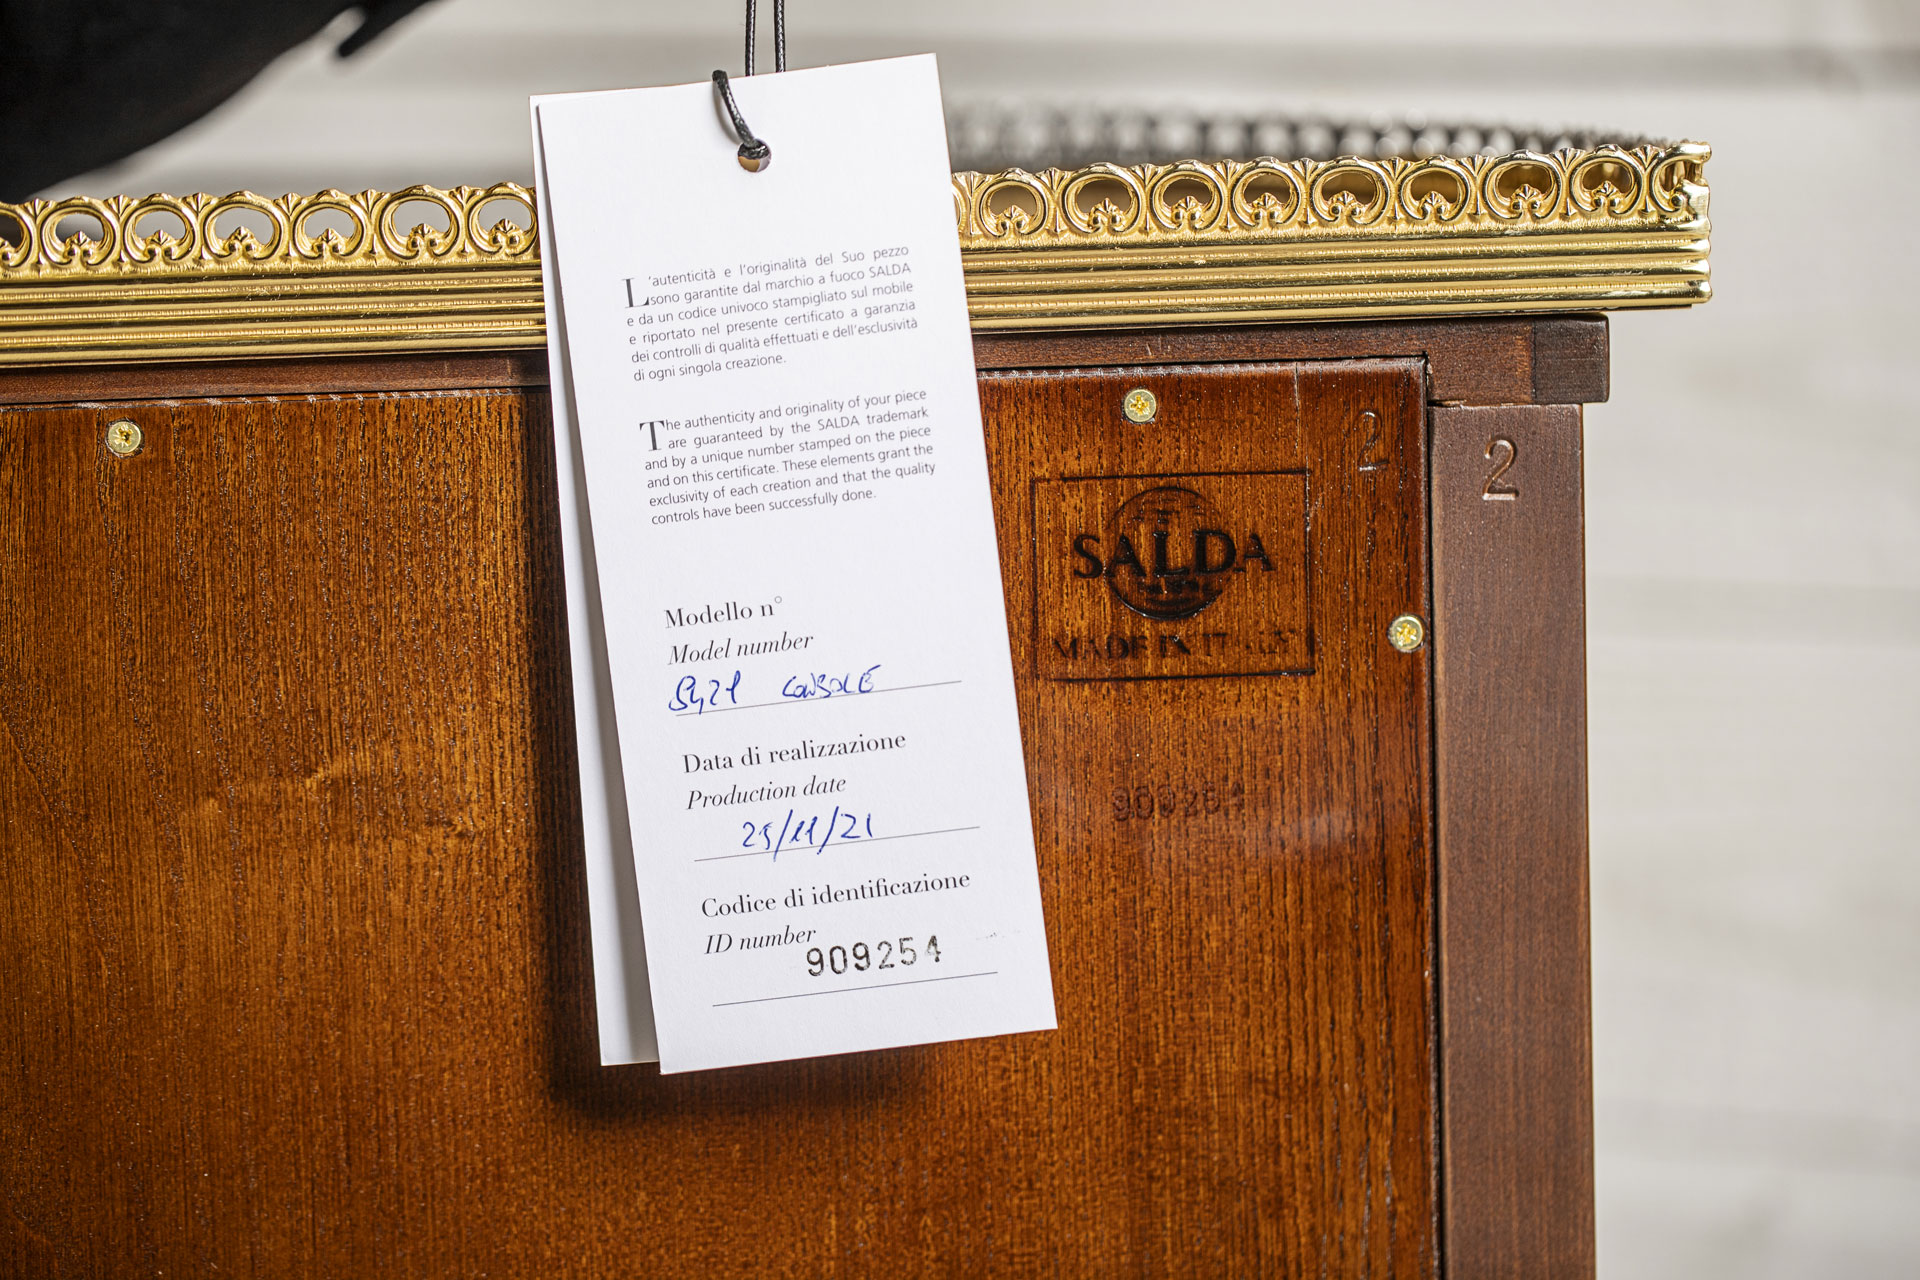 L'autenticità e l'originalità del Suo pezzo
sono garantite dal marchio a fuoco SALDA
e da un codice univoco stampigliato sul mobile
e riportato nel presente certificato a garanzia
dei controlli di qualità effettuati e dell'esclusività
di ogni singola creazione.
The authenticity and originality of your piece
are guaranteed by the SALDA trademark
and by a unique number stamped on the piece
and on this certificate. These elements grant the
exclusivity of each creation and that the quality
controls have been successfully done.
Modello n°
Model number
CONSOLE
Data di realizzazione
Production date
25/11/21
Codice di identificazione
ID number
909254
2
2
SALDA
MADE IN ITALY
909254